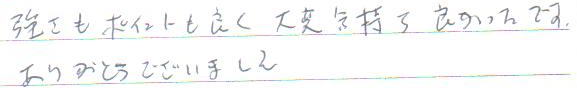 強さもポイントも良く 大変気持ち良かったです.
ありがとうございました